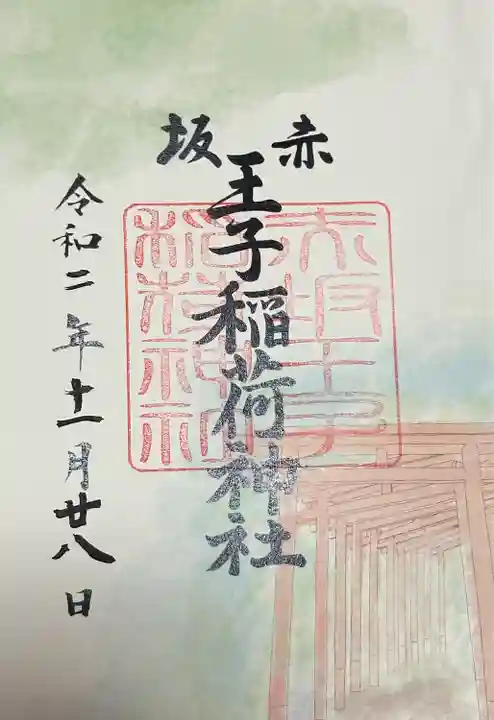 赤坂
王子稲荷神社
赤坂王子
稲荷神社
令和二年十一月廿八日